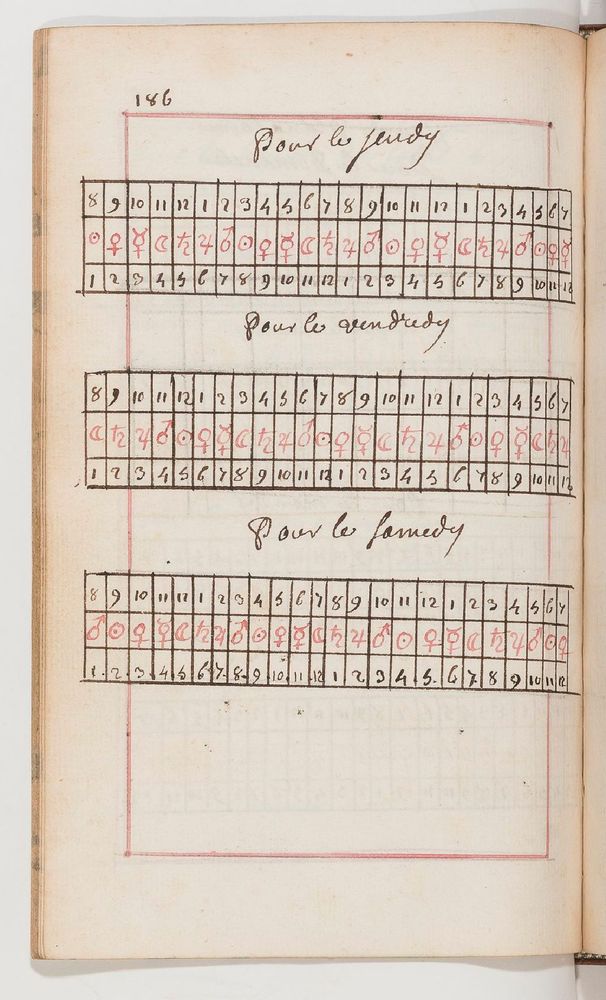 186
Pour le jeudy
8 9 10 11 12 1 2 3 4 5 6 7 8 9 10 11 12 1 2 3 4 5 6 7
☉ ♀ ☿ ☾ ♄ ♃ ♂ ☉ ♀ ☿ ☾ ♄ ♃ ♂ ☉ ♀ ☿ ☾ ♄ ♃ ♂ ☉ ♀ ☿
1 2 3 4 5 6 7 8 9 10 11 12 1 2 3 4 5 6 7 8 9 10 11 12
Pour le vendredy
8 9 10 11 12 1 2 3 4 5 6 7 8 9 10 11 12 1 2 3 4 5 6 7
☾ ♄ ♃ ♂ ☉ ♀ ☿ ☾ ♄ ♃ ♂ ☉ ♀ ☿ ☾ ♄ ♃ ♂ ☉ ♀ ☿ ☾ ♄ ♃
1 2 3 4 5 6 7 8 9 10 11 12 1 2 3 4 5 6 7 8 9 10 11 12
Pour le samedy
8 9 10 11 12 1 2 3 4 5 6 7 8 9 10 11 12 1 2 3 4 5 6 7
♂ ☉ ♀ ☿ ☾ ♄ ♃ ♂ ☉ ♀ ☿ ☾ ♄ ♃ ♂ ☉ ♀ ☿ ☾ ♄ ♃ ♂ ☉ ♀
1. 2. 3. 4. 5 6. 7. 8. 9 .10. 11. 12 1 2 3 4. 5. 6 7 8 9 10 11 12